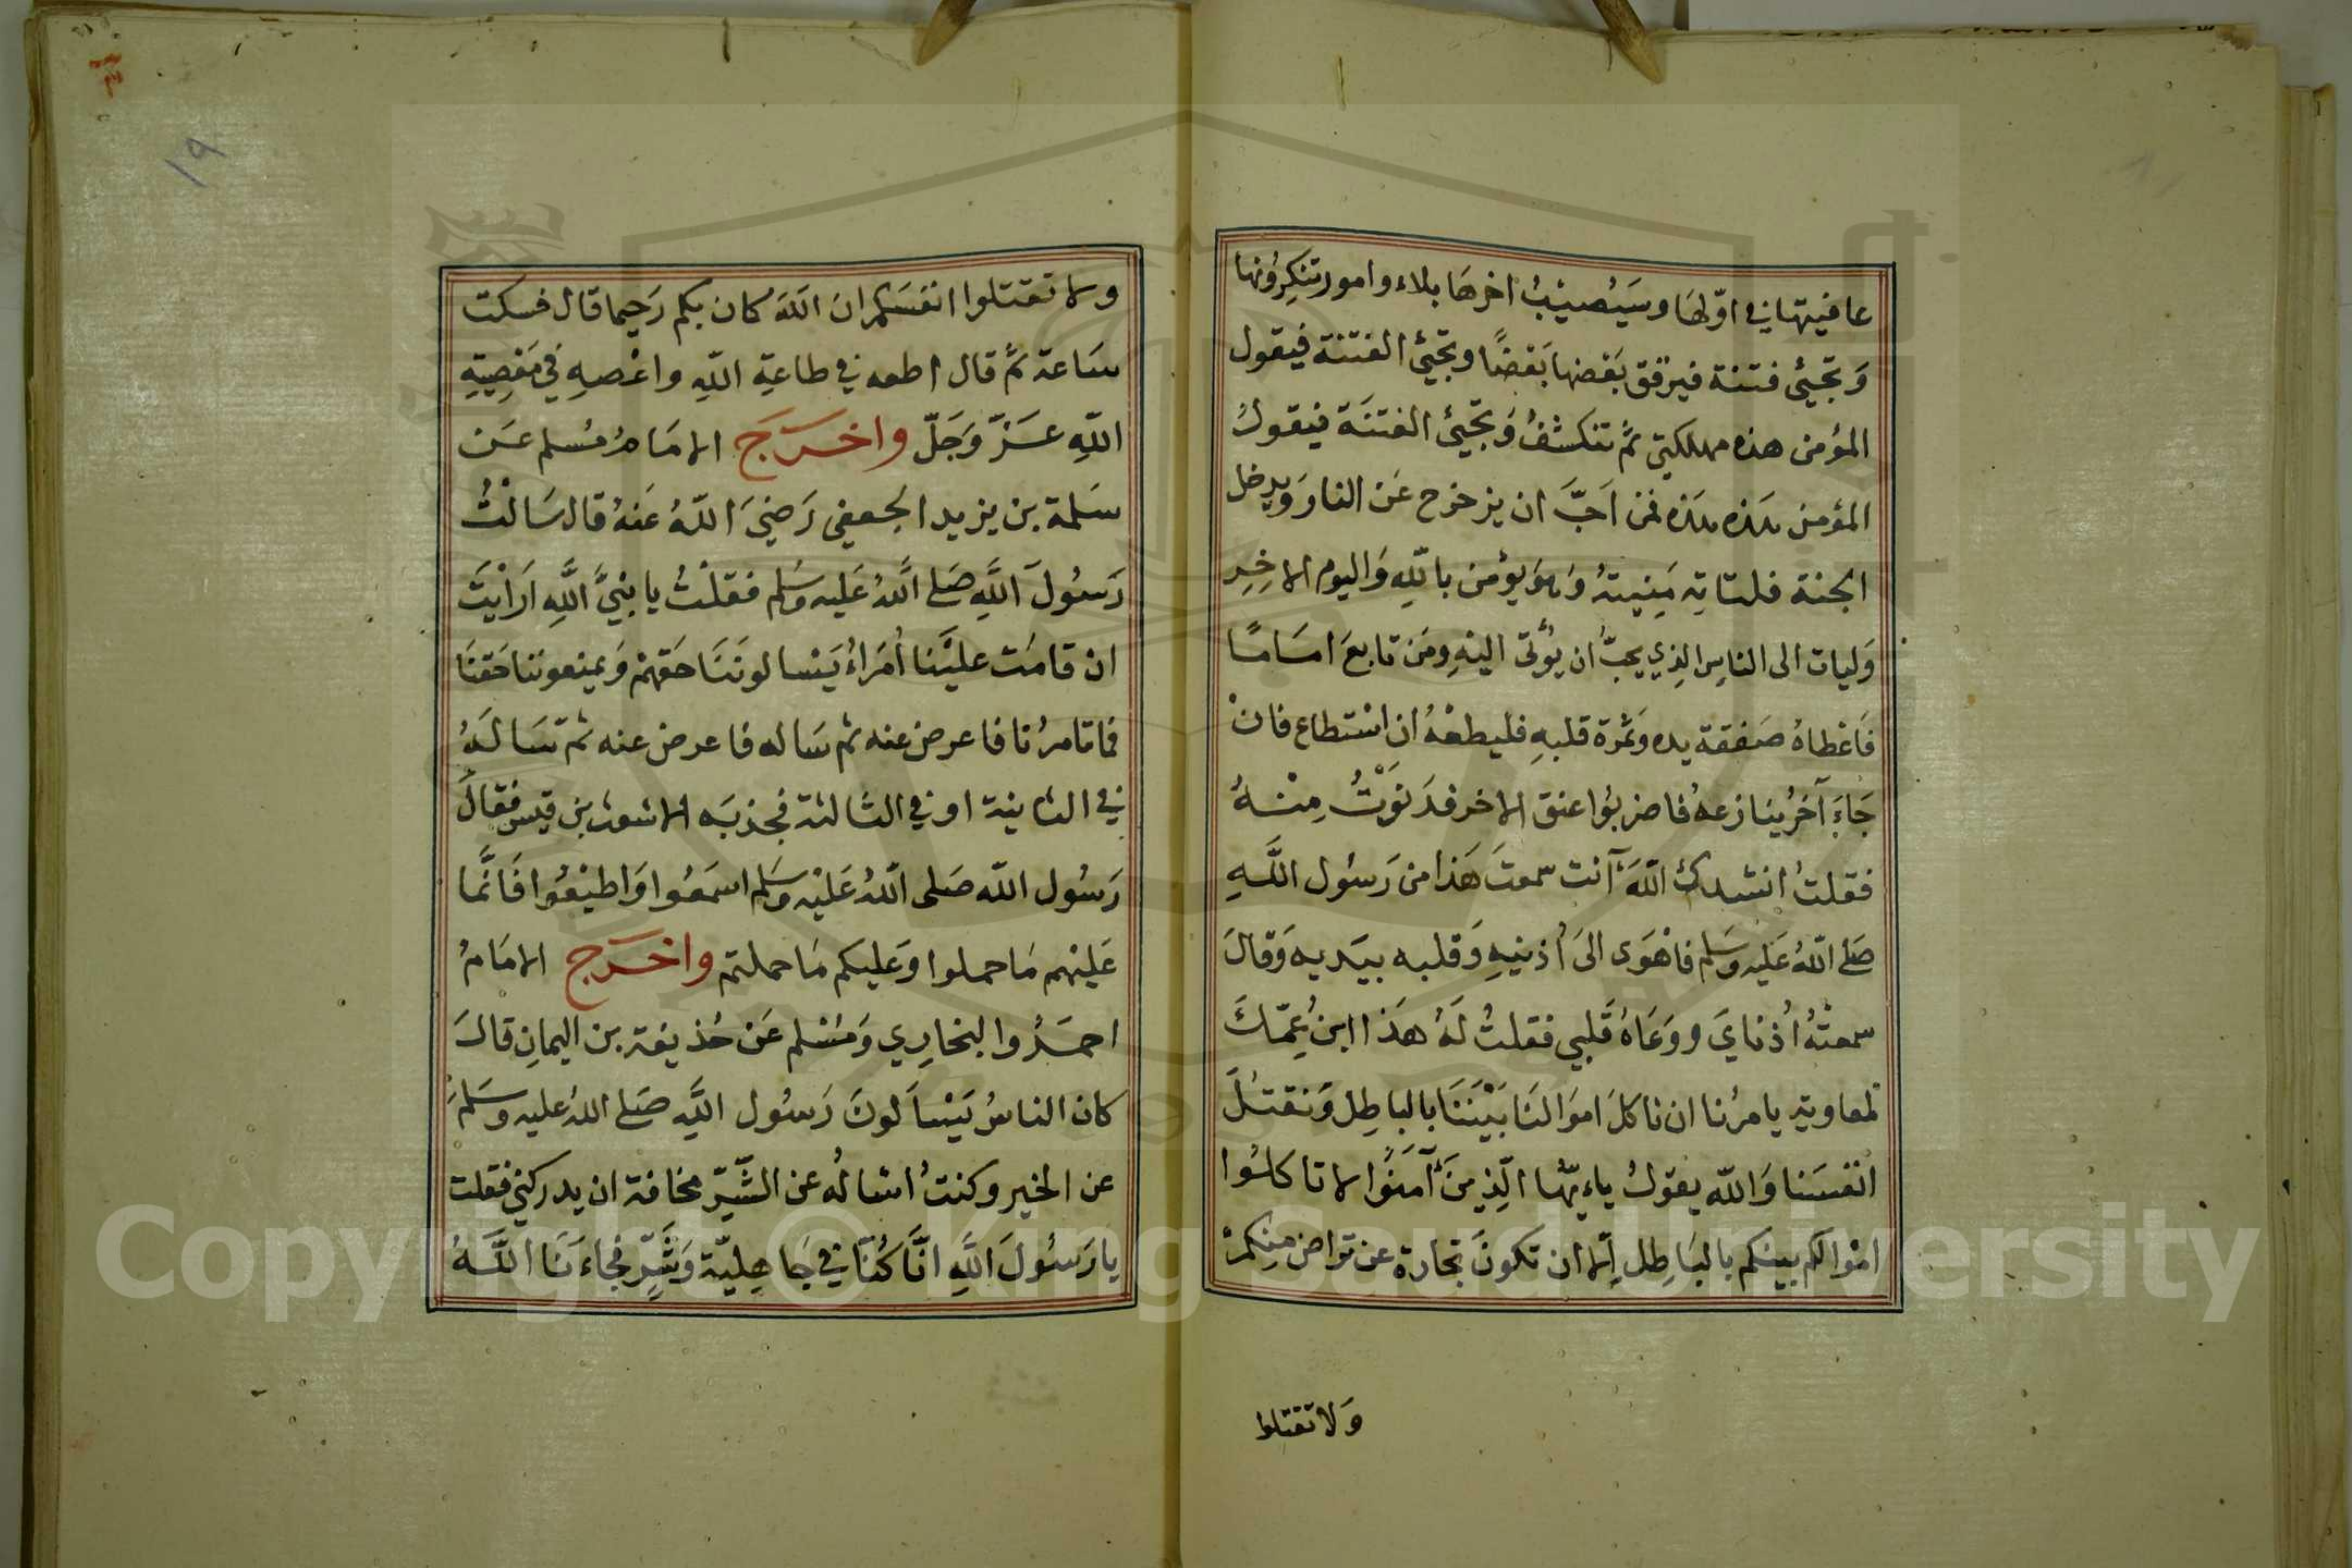 عافيتها في اوّلها وسَيُصيْبُ اخرهَا بلاء وامور تنكِرُونها
وَتجيئ فتنة فيرقق بَعْضها بَعْضًا وتجيئ الفتنة فيقول
المؤمن هذه مهلكتي ثمّ تنكشفُ وَتجيئ الفتنَة فيَقولُ
المؤمن هَذه هَذه فمَن اَحبَّ ان يزحزح عَن النار وَيدخل
الجنة فلتاته مَنِيتهُ وَهوَ يؤمن باللّهِ وَاليوم الاخِرِ
وَليات الى الناسِ الذِي يحبُّ ان يُؤتى اليْهِ ومَن تابعَ امَامًا
فَاعْطاهُ صَفقة يده وَثمرة قلبهِ فليطعْهُ ان اسْتطاع فانْ
جَاءَ آخَرُ ينازعهُ فاضربُوا عنق الاخر فدَنَوْتُ مِنْهُ
فقلتُ انشدك اللّهَ آنت سمعتَ هَذا من رَسُول اللَّهِ
صَلى اللّهُ عَليه وسَلم فاهْوَى الىَ اُذنيهِ وَقلبه بيَديه وَقالَ
سمعتْهُ اُذنايَ ووَعَاهُ قَلبي فقلتُ لَهُ هَذا ابنُ عِمّكَ
لمعاوية يامرُنا ان ناكلَ اموَالنَا بَيْنَنَا بالبَاطِل وَنقتلَ
انفسَنا وَاللّه يقوُلُ ياءيّها الّذِينَ آمَنُوا لا تاكلُوا
امْوالكم بينكم بالبَاطِل اِلّا ان تكونَ تجارة عن تراض منِكمْ
وَلا تقتلوا
ولا تقتلوا انفسَكم ان اللّهَ كان بكم رَحيما قال فسكت
سَاعة ثمّ قال اطعه في طاعةِ اللّهِ واعْصهِ في مَعْصِيَةِ
اللّهِ عَزّ وَجَلّ واخرَجَ الامَامُ مُسلم عَن
سَلمة بن يزيد الجعفي رَضيَ اللّهُ عَنهُ قال سَالتُ
رَسُولَ اللَّهِ صَلى اللَّهُ عَليه وسَلم فقلْتُ يا نبيَّ اللَّهِ اَرَاَيْتَ
ان قامَت عليْنا اُمَراءُ يَسْالونَنَا حَقهمْ وَيمنعونَنا حَقنَا
فما تامرُنا فاعرض عنه ثم سَاله فاعرض عنه ثمّ سَالَهُ
في الثانية او في الثالثة فجذبَه الاشعث بن قيس فقالَ
رَسُول اللّه صَلى اللّهُ عَليْه وسَلم اسمَعُوا وَاطيْعُوا فَانَّما
عَليْهم مَا حملوا وَعَليكم مَا حملتم واخرَج الامَامُ
احمَدُ والبخارِي وَمُسْلم عَن حُذيفة بن اليمانِ قالَ
كان الناسُ يَسْاَلونَ رَسُول اللَّهِ صَلى اللهُ عليه وسَلم
عن الخير وكنتُ اسْالُه عن الشَّرِّ مخافة ان يدركني فقلت
يا رَسُولَ اللَّهِ انَّا كُنَّا في جَاهِليّة وَشَّرٍّ فجاءَنَا اللَّهُ
١٩
Copyright © King Saud University